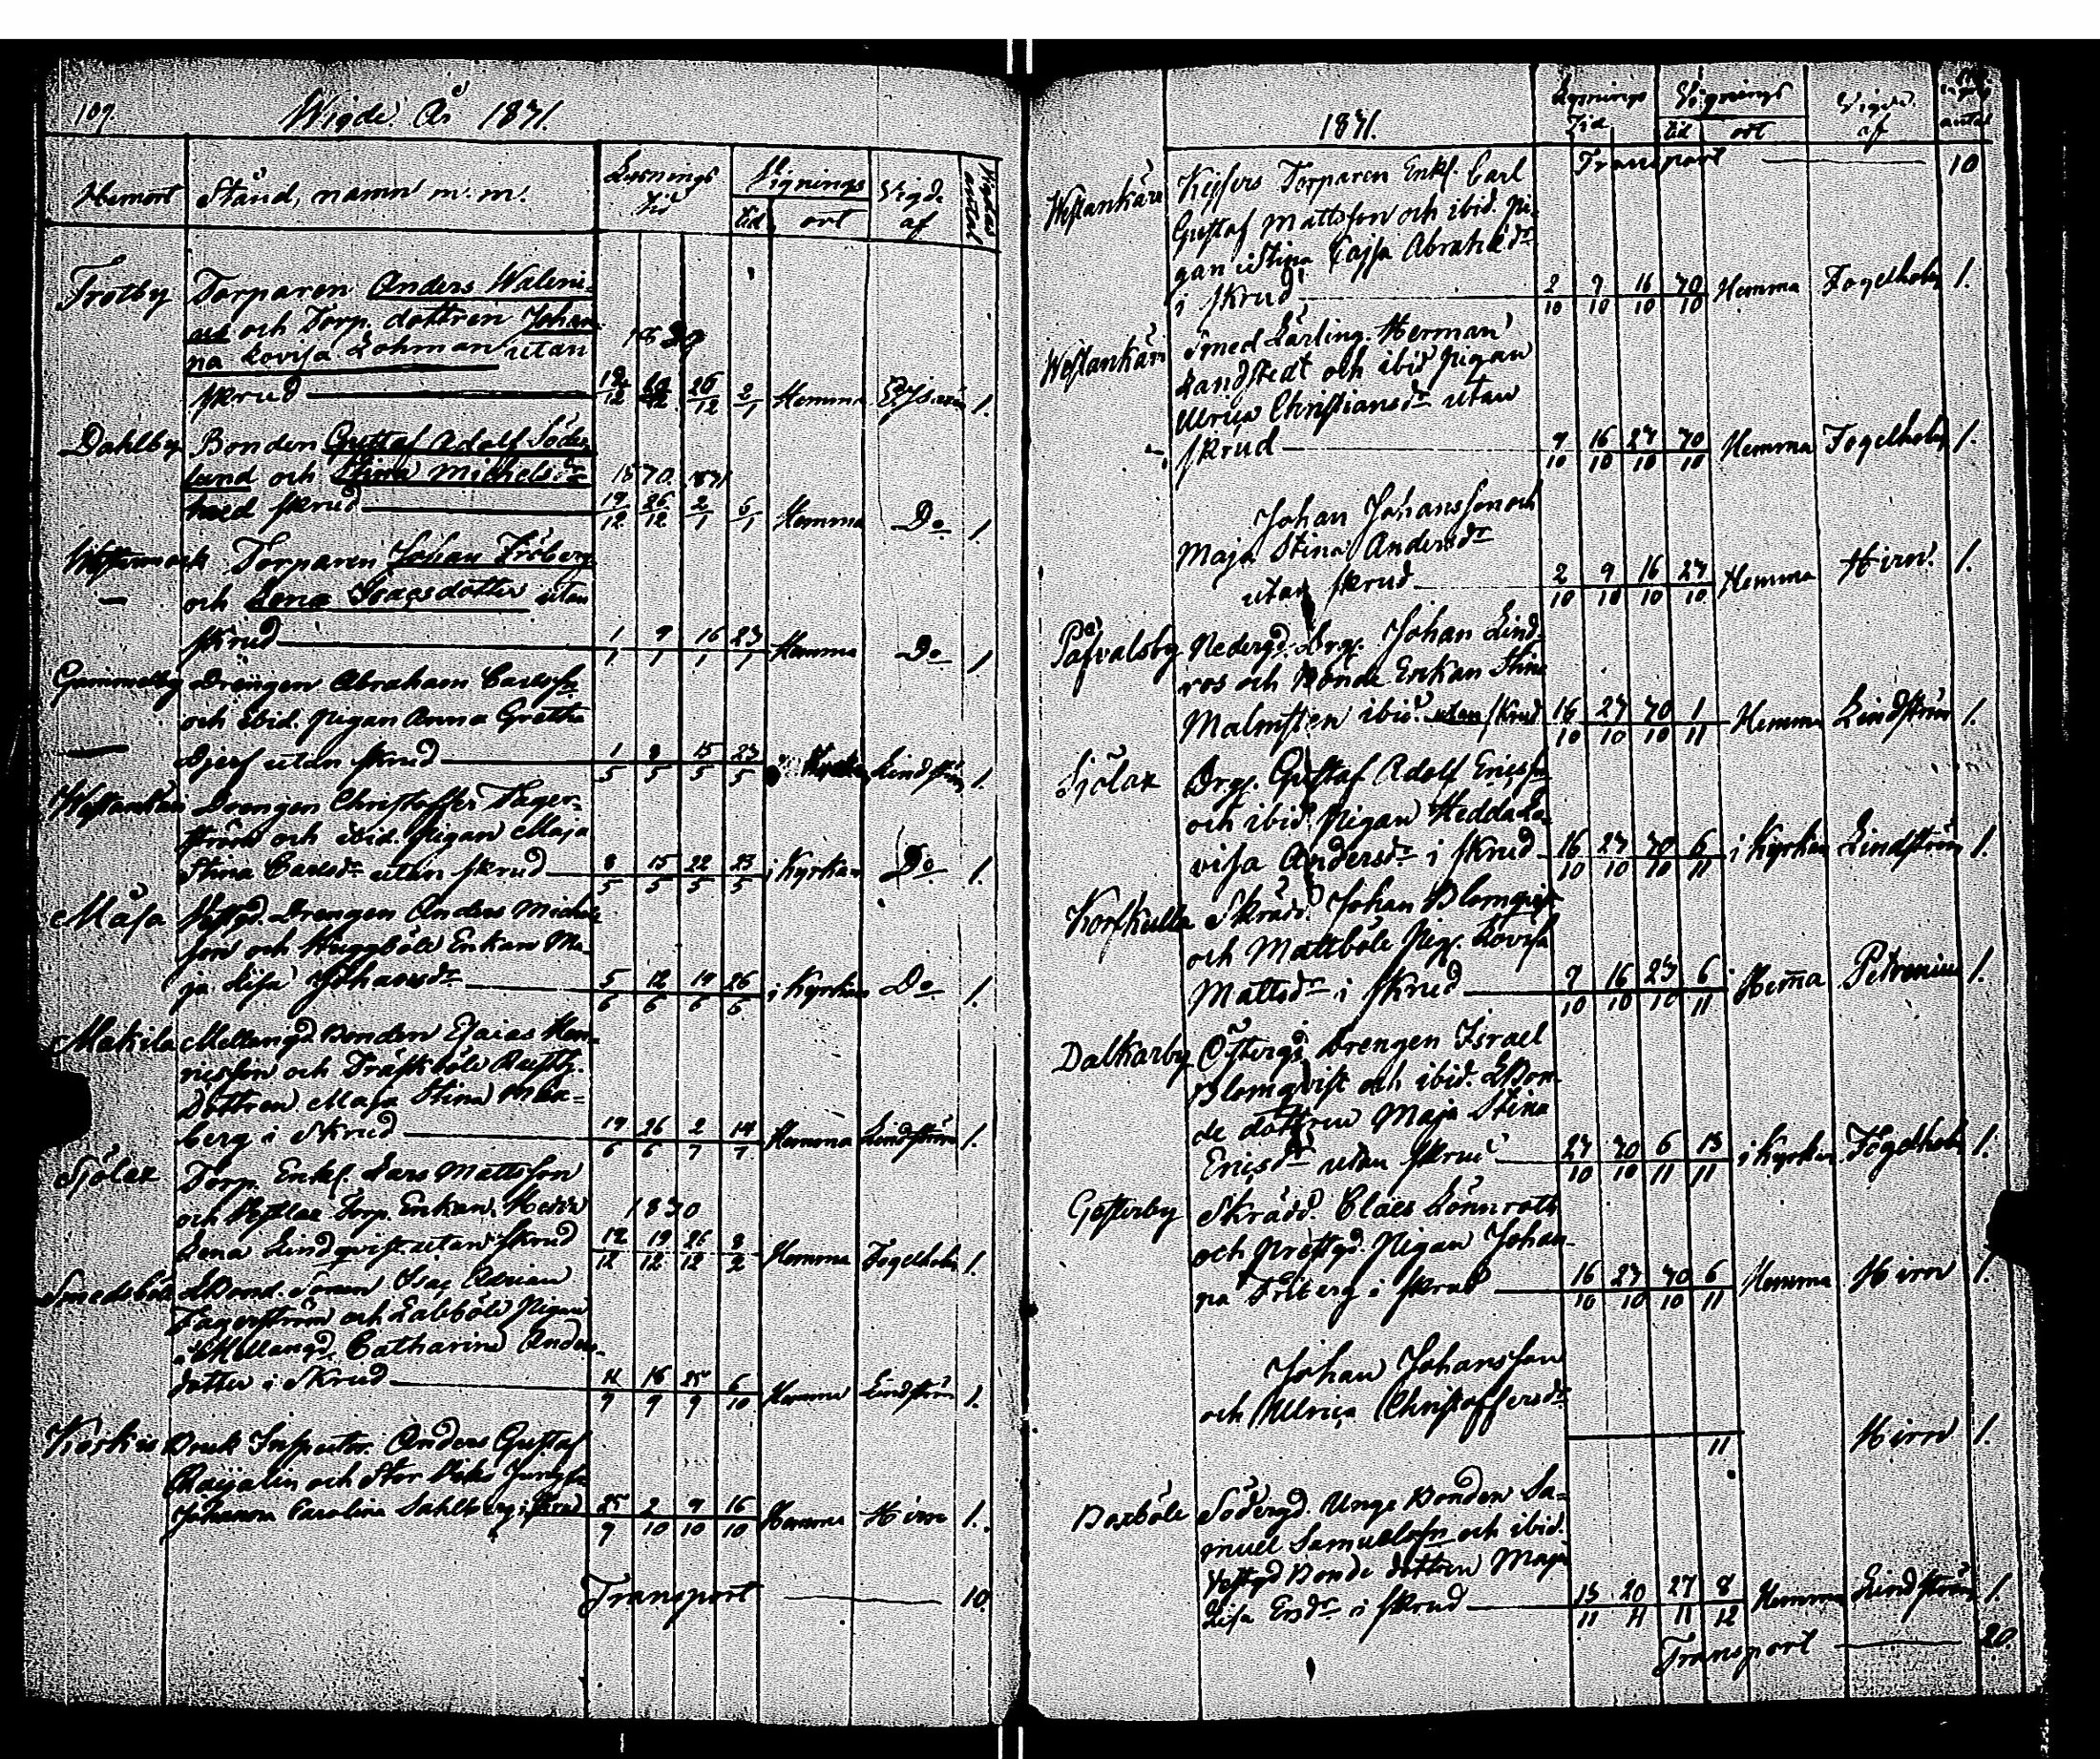 109.
Wigde År 1831.
Hemort Stånd, namn m. m. Lysnings tid Vignings tid ort Vigde af Vigslars antal
Trotby Torparen Anders Waleni-
us och Torp. dottren Johan-
na Lovisa Lohman utan
skrud 12/12 26/12 2/1 Hemma 1.
Dahlby Bonden Gustaf Adolf Söder-
lund och Stina Michelsdr 1830. 1831
med skrud 19/12 26/12 2/1 6/1 Hemma Do 1
Westermark Torparen Johan Fröberg
— och Lena Isacsdotter utan
skrud 1/1 9/1 16/1 23/1 Hemma Do 1
Drängen Abraham Carlss:
och ibid. Pigan Anna Gretha
— utan skrud 1/5 8/5 15/5 23/5 Lindström 1.
Westankärr Drengen Christoffer Fager-
ström och ibid. Pigan Maja
Stina Carlsdr utan skrud 8/5 15/5 22/5 23/5 i Kyrkan Do 1.
Måsa Drengen Anders Michels-
son och Huggböle Enkan Ma-
ja Lisa Johansdr 5/6 12/6 19/6 26/6 i Kyrkan Do 1.
Makila Mellangd Bonden Esaias Hen-
ricsson och Träskböle
Dottren Maja Stina
berg i Skrud 19/6 26/6 2/7 14/7 Hemma Lindström 1.
Sjölax Torp. Enkl. Lars Mattsson
och Torp. Enkan Hedda 1830
Lena Lindqvist utan skrud 12/12 19/12 26/12 2/2 Hemma Fogelholm 1.
Smedsböle Bond. Sonen Isac Adrian
Fagerström och Labböle Pigan
Mellangd. Catharina Anders-
dotter i Skrud 11/9 16/9 25/9 6/10 Hemma Lindström 1.
Koskis Bruk Inspector Anders Gustaf
och Stor Jungfr.
Johanna Carolina Sahlberg i skrud 25/9 2/10 9/10 16/10 Hemma Hirn 1.
Transport — 10
1831. Lysnings Tid Vignings tid ort Vigde af antal
Transport — 10
Westankärr Torparen Enkl. Carl
Gustaf Mattsson och ibid. Pi-
gan Stina Cajsa Abrahdr
i skrud 2/10 9/10 16/10 30/10 Hemma Fogelholm 1.
Westankärr Smed Lärling. Herman
Landstedt och ibid Pigan
Ulrica Christiansdr utan
skrud 9/10 16/10 23/10 30/10 Hemma Fogelholm 1.
Johan Johansson och
Maja Stina Andersdr
utan skrud 2/10 9/10 16/10 23/10 Hemma Hirn 1.
Påfvalsby Nedergd. Drg. Johan Lind-
ros och Bonde Enkan Stina
Malmsten ibid. utan skrud 16/10 23/10 30/10 1/11 Hemma Lindström 1.
Sjölax Drg. Gustaf Adolf Ericss:
och ibid. Pigan Hedda Lo-
visa Andersdr i skrud 16/10 23/10 30/10 6/11 i Kyrkan Lindström 1.
Korskulla Skrädd. Johan Blomqvist
och Mattböle Pig. Lovisa
Mattsdr i skrud 9/10 16/10 23/10 6/11 Hemma Petronius 1.
Dalkarby Östergd Drengen Israel
Blomqvist och ibid. Bon-
de dottren Maja Stina
Ericsdr utan skrud 23/10 30/10 6/11 13/11 i Kyrkan Fogelholm 1.
Gästerby Skrädd. Claes Lönnroth
och Prestgd. Pigan Johan-
na Friberg i skrud 16/10 23/10 30/10 6/11 Hemma Hirn 1.
Johan Johansson
och Ulrica Christoffersdr
11 Hirn 1.
Boxböle Södergd. Unge Bonden Sa-
muel Samuelsson och ibid.
Westgd Bonde dottren Maja
Lisa Ersdr i skrud 13/11 20/11 27/11 8/12 Hemma Lindström 1.
Transport — 20